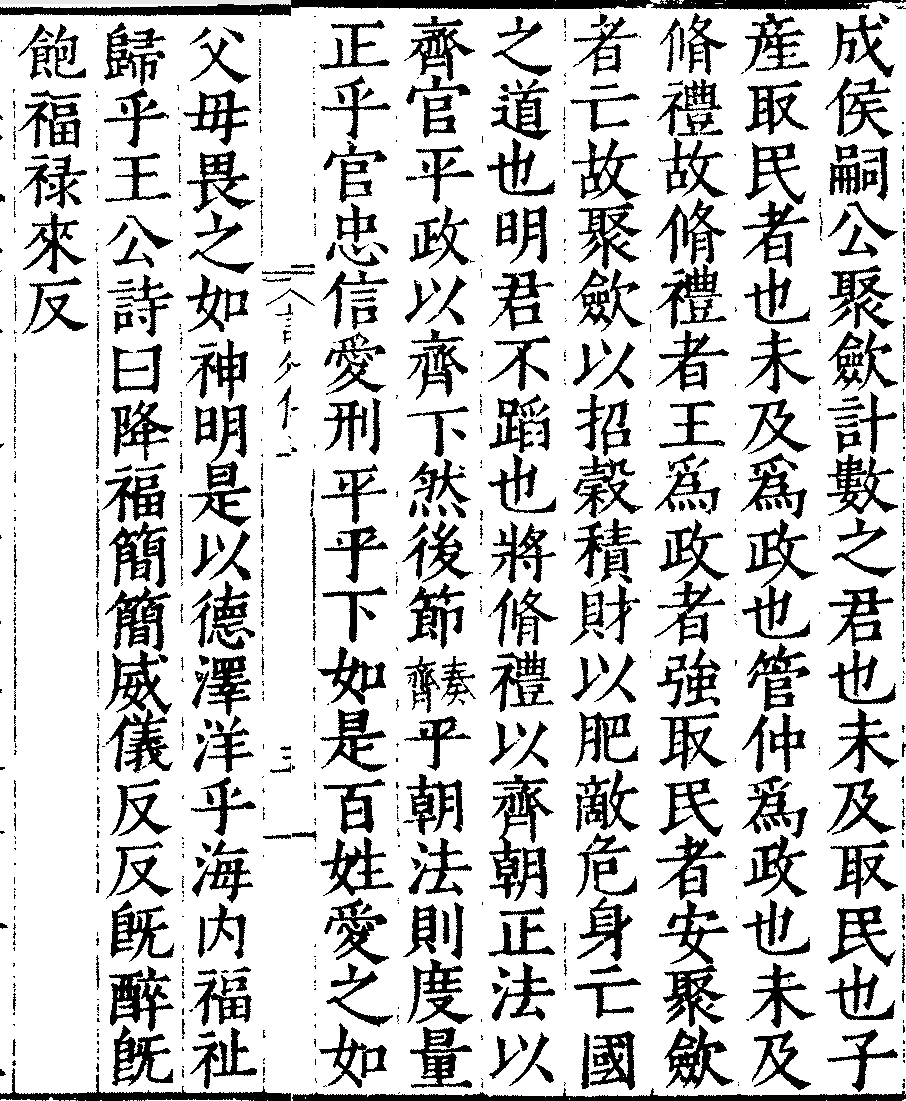 成侯嗣公聚歛計數之君也未及取民也子
産取民者也未及爲政也管仲爲政也未及
脩禮故脩禮者王爲政者強取民者安聚歛
者亡故聚歛以招㓂積財以肥敵危身亡國
之道也明君不蹈也將脩禮以齊朝正法以
齊官平政以齊下然後節奏齊乎朝法則度量
正乎官忠信愛刑平乎下如是百姓愛之如
父母畏之如神明是以德澤洋乎海内福祉
歸乎王公詩曰降福簡簡威儀反反旣醉旣
飽福禄來反